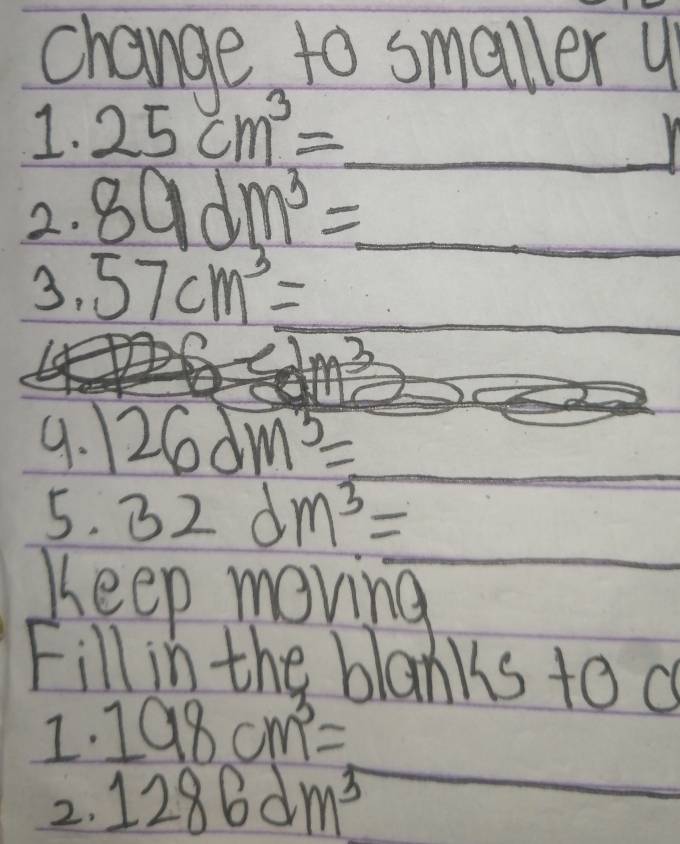 change to smaller
1. 25 cm³ =
2. 89 dm³ =
3. 57 cm³ =
4. 126 dm³ =
5. 32 dm³ =
Keep moving
Fill in the blanks to
1. 198 cm³ =
2. 1286 dm³